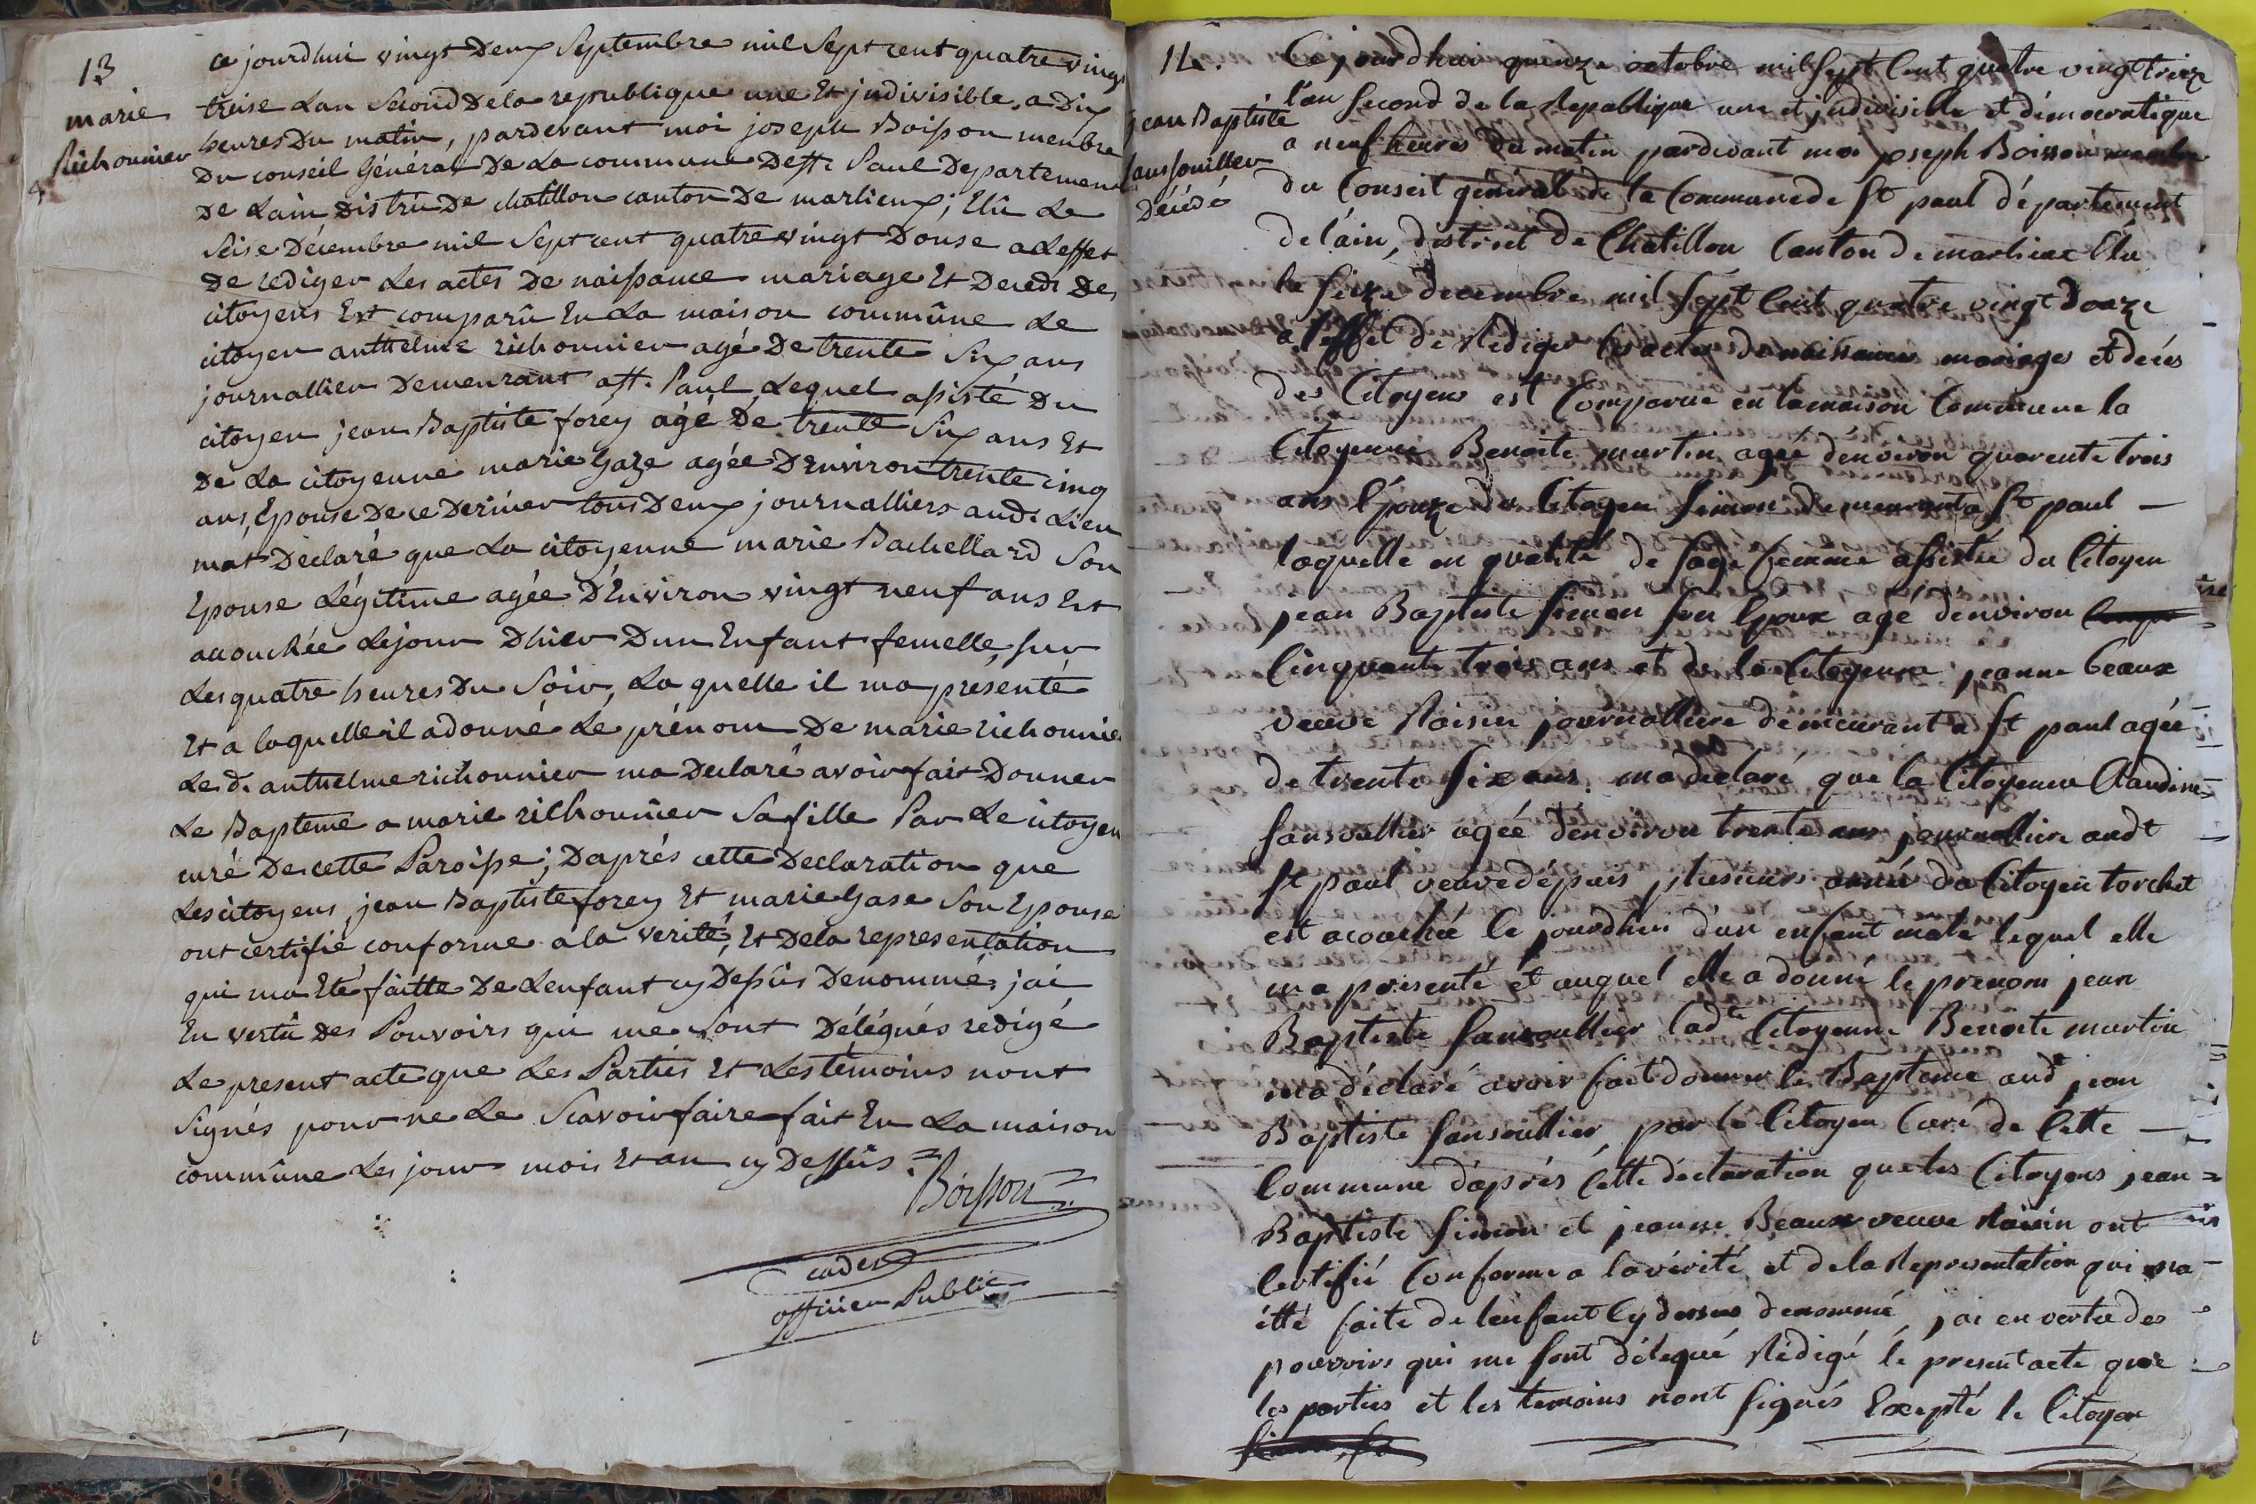 13
marie
Richonnier
ce jourdhui vingt Deux Septembre mil Sept cent quatre vingt
treise Lan Second De la republique une Et jndivisible, a Dix
heures Du matin, pardevant moi joseph Boisson menbre
Du conseil Général De La commune De St. Paul Departement
De Lain Distric De chatillon canton De marlieux; Elû Le
Seise Décembre mil Sept cent quatre vingt Douse a Leffet
De rediger Les actes De naissance mariage Et Decedt Des
citoyens Est comparû En La maison commûne Le
citoyen anthelme richonnier agé De trente Six ans
journallier Demeurant a St. Paul Lequel assisté Du
citoyen jean Baptiste forey agé De trente Six ans Et
De La citoyenne marie Gaze agée D'Environ trente cinq
ans, Epouse De ce Dernier tous Deux journalliers aud. Lieu
mat Declaré que La citoyenne marie Bachellard Son
Epouse Légitime agée D'Environ vingt neuf ans Est
accouchée Le jour Dhier Dun Enfant femelle, sur
Les quatre heures Du Soir, La quelle il ma presenté
Et a laquelle il a donné Le prénom De marie richonnier
Le d. anthelme richonnier ma Declaré avoir fait Donner
Le Bapteme a marie richonnier Sa fille Par Le citoyen
curé De cette Paroisse; Daprés cette Declaration que
Les citoyens, jean Baptiste forey Et marie Gase Son Epouse
ont certifié conforme a la verité, Et De la representation
qui ma Eté faitte De Lenfant cy Dessûs Denommé, jai
En vertû Des Pouvoirs qui me Sont Délégués redigé
Le present acte que Les Parties Et Les témoins nont
Signés pour ne Le Scavoir faire fait En La maison
commûne Les jour mois Et an cy Dessûs =
Boisson
cadet
officier Public
14.
jean Baptiste
Sansouiller
Décédé
Ce jourdhui quinze octobre mil Sept Cent quatre vingt treize
l'an Second de la Republique une et jndivisible et démocratique
a neuf heures du matin pardevant moi joseph Boisson membre
du Conseil général de la Commune de St paul département
de l'ain, district de Chatillon Canton de marlieux Elu
le Seize decembre mil Sept Cent quatre vingt Douze
a l'effet de Rediger les actes de naissances mariages et décés
des Citoyens est Comparue en la maison Commune la
Citoyenne Benoite martin agée d'environ quarente trois
ans l'Epouze du Citoyen Simon demeurant a St paul —
laquelle en qualité de Sage femme assistée du Citoyen
jean Baptiste Simon Son Epoux agé d'environ
Cinquante trois ans et de la Citoyenne jeanne beaux
veuve Roisin journalliere demeurant a St paul agée
de trente Six ans ma declaré que la Citoyenne Claudine
Sansoullier agée d'environ trente ans journalliere audt
St paul veuve dépuis plusieurs année du Citoyen torchet
est acouchée le jourdhui d'un enfent mâle lequel elle
m'a présenté et auquel elle a donné le prenom jean
Baptiste Sansoullier lad.te Citoyenne Benoite martin
m'a déclaré avoir fait donner le Bapteme audt jean
Baptiste Sansoullier, par le Citoyen Curé de Cette —
Commune d'aprés Cette déclaration que les Citoyens jean =
Baptiste Simon et jeanne Beaux veuve Roisin ont
Certifié Conforme a la vérité et de la Representation qui m'a
étté faite de lenfant Cy dessus denommé, j'ai en vertu des
pouvoirs qui me Sont délegué Rédigé le present acte que
les parties et les temoins n'ont Signés Excepté le Citoyen